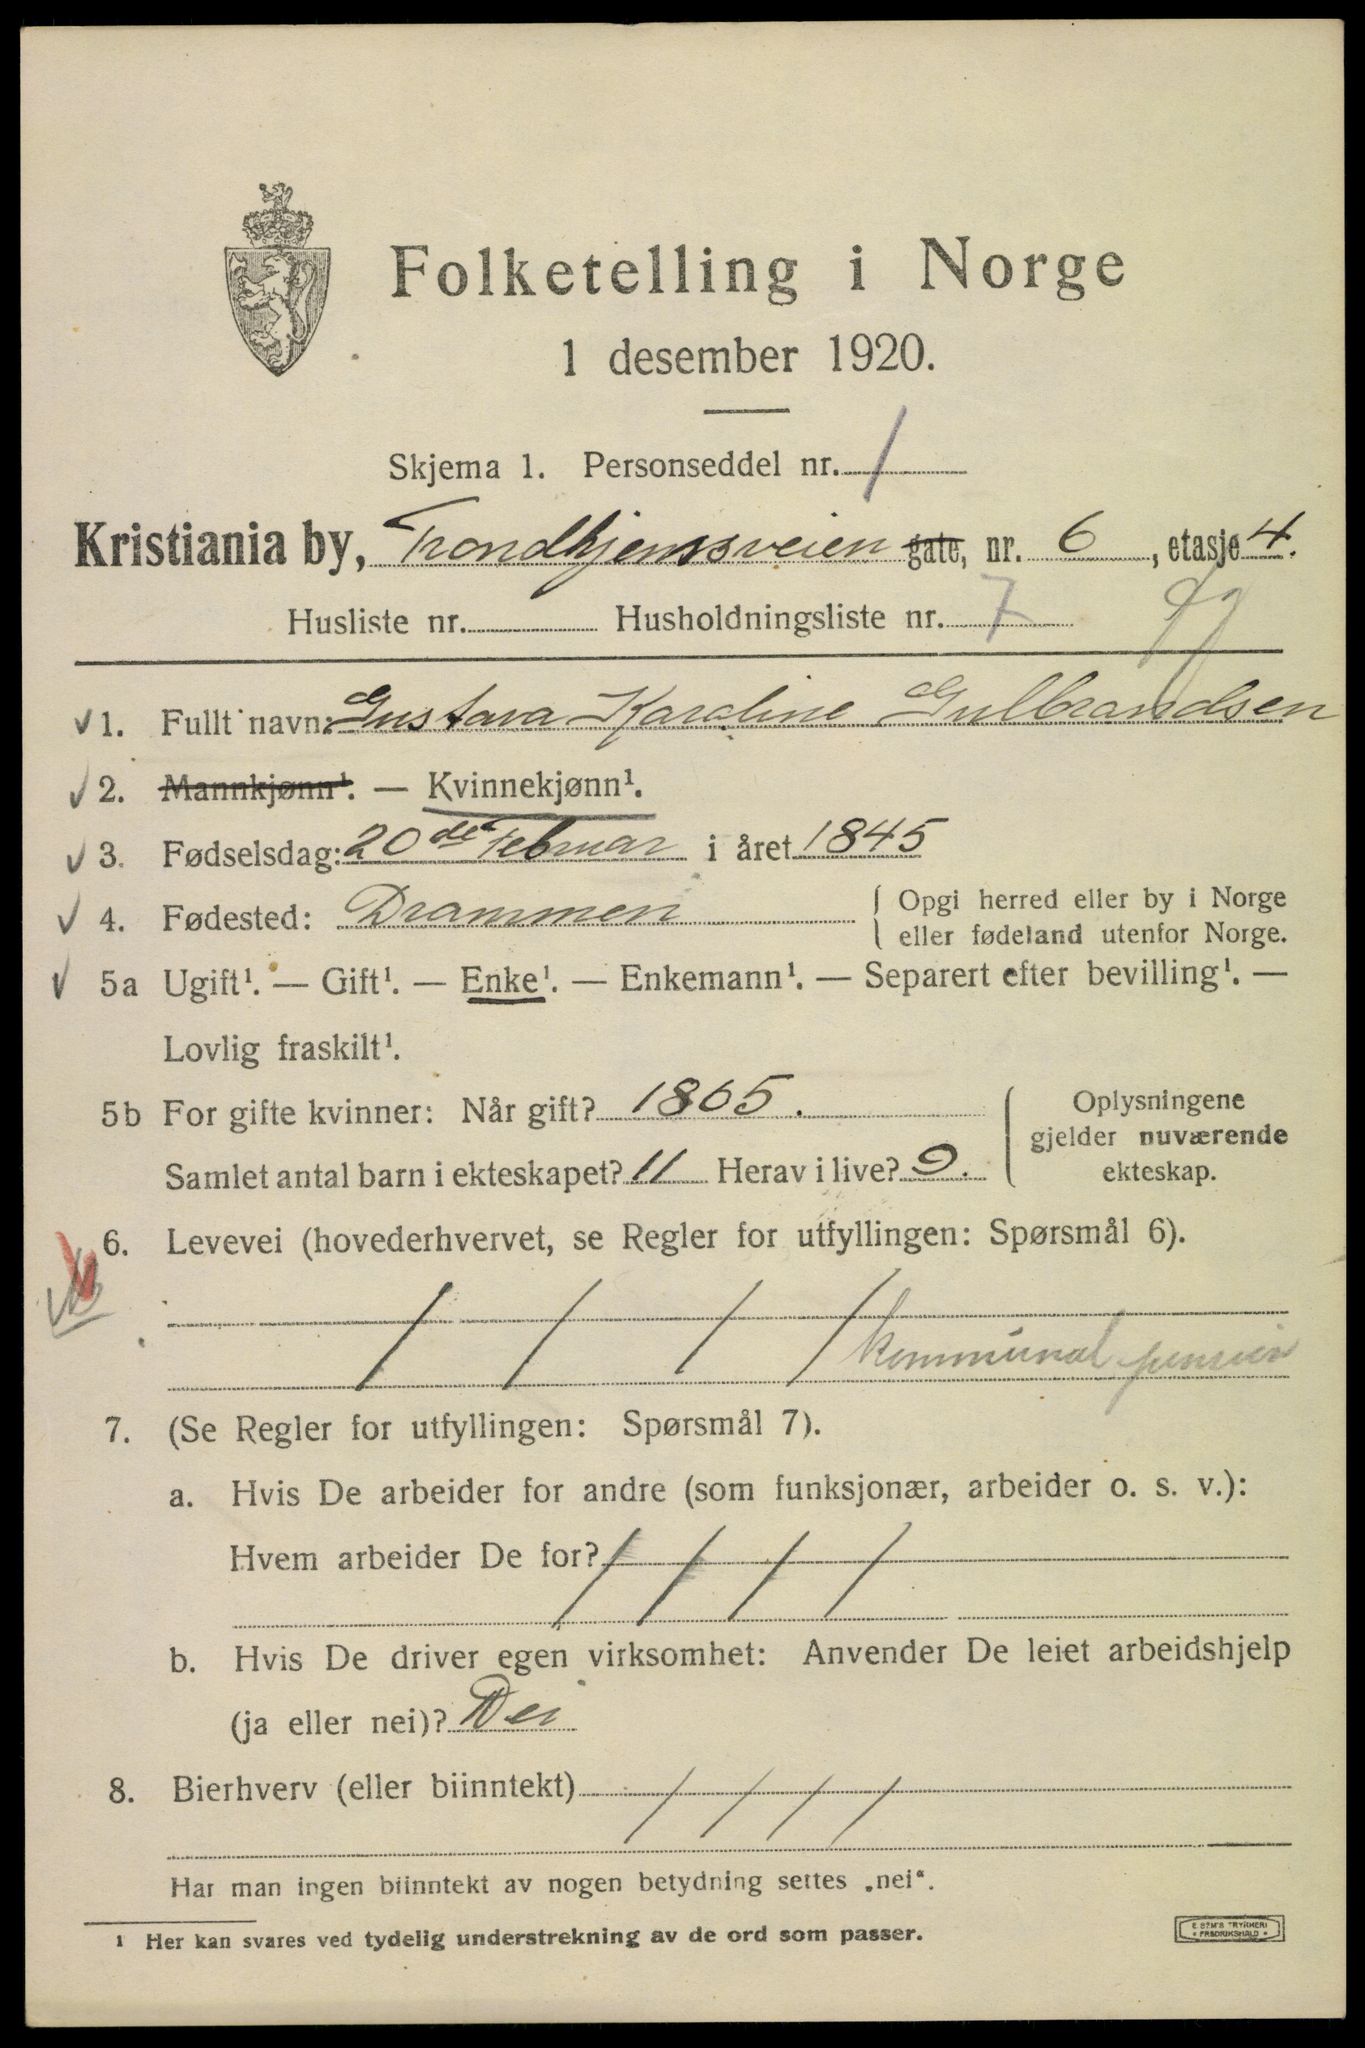 Folketelling i Norge
1 desember 1920.
Skjema 1. Personseddel nr. 1
Kristiania by, Trondhjemsveien gate, nr. 6, etasje 4.
Husliste nr. Husholdningsliste nr. 7
1. Fullt navn: Gustava Karoline Gulbrandsen
2. Mannkjønn¹. — Kvinnekjønn¹.
3. Fødselsdag: 20de Februar i året 1845
4. Fødested: Drammen { Opgi herred eller by i Norge
eller fødeland utenfor Norge.
5a Ugift¹. — Gift¹. — Enke¹. — Enkemann¹. — Separert efter bevilling¹. —
Lovlig fraskilt¹.
5b For gifte kvinner: Når gift? 1865.
Samlet antal barn i ekteskapet? 11 Herav i live? 9.
Oplysningene
gjelder nuværende
ekteskap.
6. Levevei (hovederhvervet, se Regler for utfyllingen: Spørsmål 6).
/ / / /
kommunal pension
7. (Se Regler for utfyllingen: Spørsmål 7).
a. Hvis De arbeider for andre (som funksjonær, arbeider o. s. v.):
Hvem arbeider De for? / / / /
b. Hvis De driver egen virksomhet: Anvender De leiet arbeidshjelp
(ja eller nei)? Nei
8. Bierhverv (eller biinntekt) / / / /
Har man ingen biinntekt av nogen betydning settes „nei“.
¹ Her kan svares ved tydelig understrekning av de ord som passer.
E SEM'S TRYKKERI
* FREDRIKSHALD *